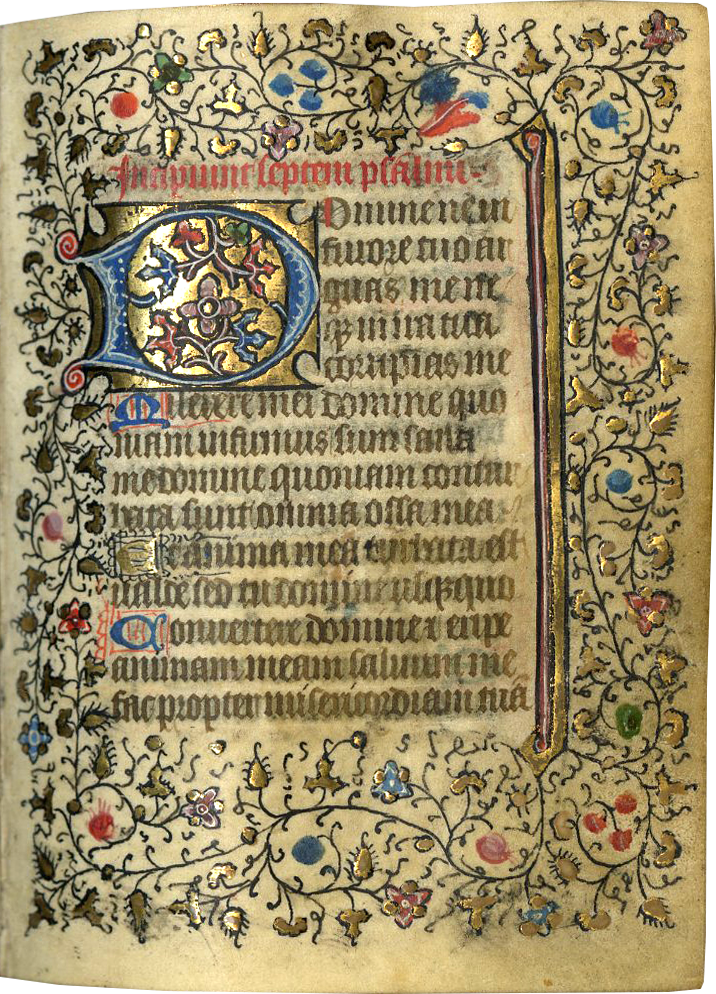 Incipiunt septem psalmi.
Domine ne in
furore tuo ar
guas me ne
qz in ira tua
corripias me
Miserere mei domine quo
niam infirmus sum sana
me domine quoniam contur
bata sunt omnia ossa mea
Et anima mea turbata est
valde sed tu domine usqzquo
Conuertere domine et eripe
animam meam saluum me
fac propter misericordiam tuā